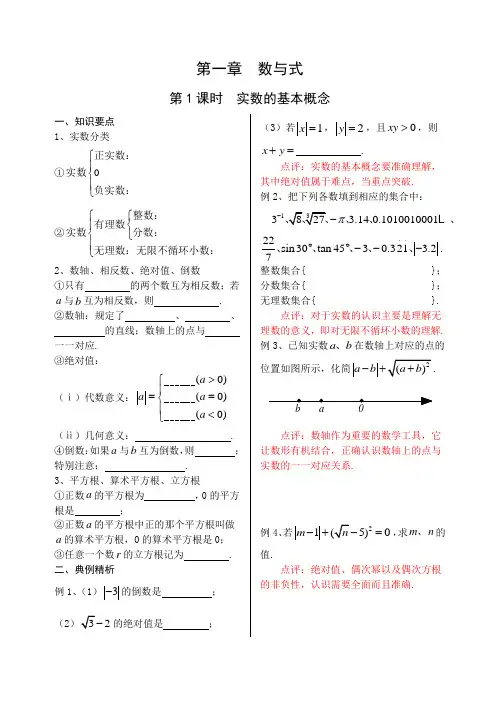 第一章 数与式
第1课时 实数的基本概念
一、知识要点
1、实数分类
①实数{正实数：
0
负实数：
②实数{有理数{整数：
分数：
无理数：无限不循环小数：
2、数轴、相反数、绝对值、倒数
①只有 的两个数互为相反数；若
a与b互为相反数，则 .
②数轴：规定了 、 、
的直线；数轴上的点与
一一对应.
③绝对值：
(ⅰ)代数意义：|a|={______(a>0)
______(a=0)
______(a<0)
(ⅱ)几何意义： .
④倒数：如果a与b互为倒数，则 ；
特别注意： .
3、平方根、算术平方根、立方根
①正数a的平方根为 ，0的平方
根是 ；
②正数a的平方根中正的那个平方根叫做
a的算术平方根，0的算术平方根是0；
③任意一个数r的立方根记为 .
二、典例精析
例1、（1）|−3|的倒数是 ；
（2）√3−2的绝对值是 ；
（3）若|x|=1，|y|=2，且xy>0，则
x+y= .
点评：实数的基本概念要准确理解，
其中绝对值属于难点，当重点突破.
例2、把下列各数填到相应的集合中：
3⁻¹、√8、∛27、−π、3.14、0.1010010001L 、
22/7、sin30°、tan45°、−3、−0.321、−3.2.
整数集合{ }；
分数集合{ }；
无理数集合{ }.
点评：对于实数的认识主要是理解无
理数的意义，即对无限不循环小数的理解.
例3、已知实数a、b在数轴上对应的点的
位置如图所示，化简|a−b|+√(a+b)².
b a 0
点评：数轴作为重要的数学工具，它
让数形有机结合，正确认识数轴上的点与
实数的一一对应关系.
例4、若|m−1|+(√n−5)²=0，求m、n的
值.
点评：绝对值、偶次幂以及偶次方根
的非负性，认识需要全面而且准确.